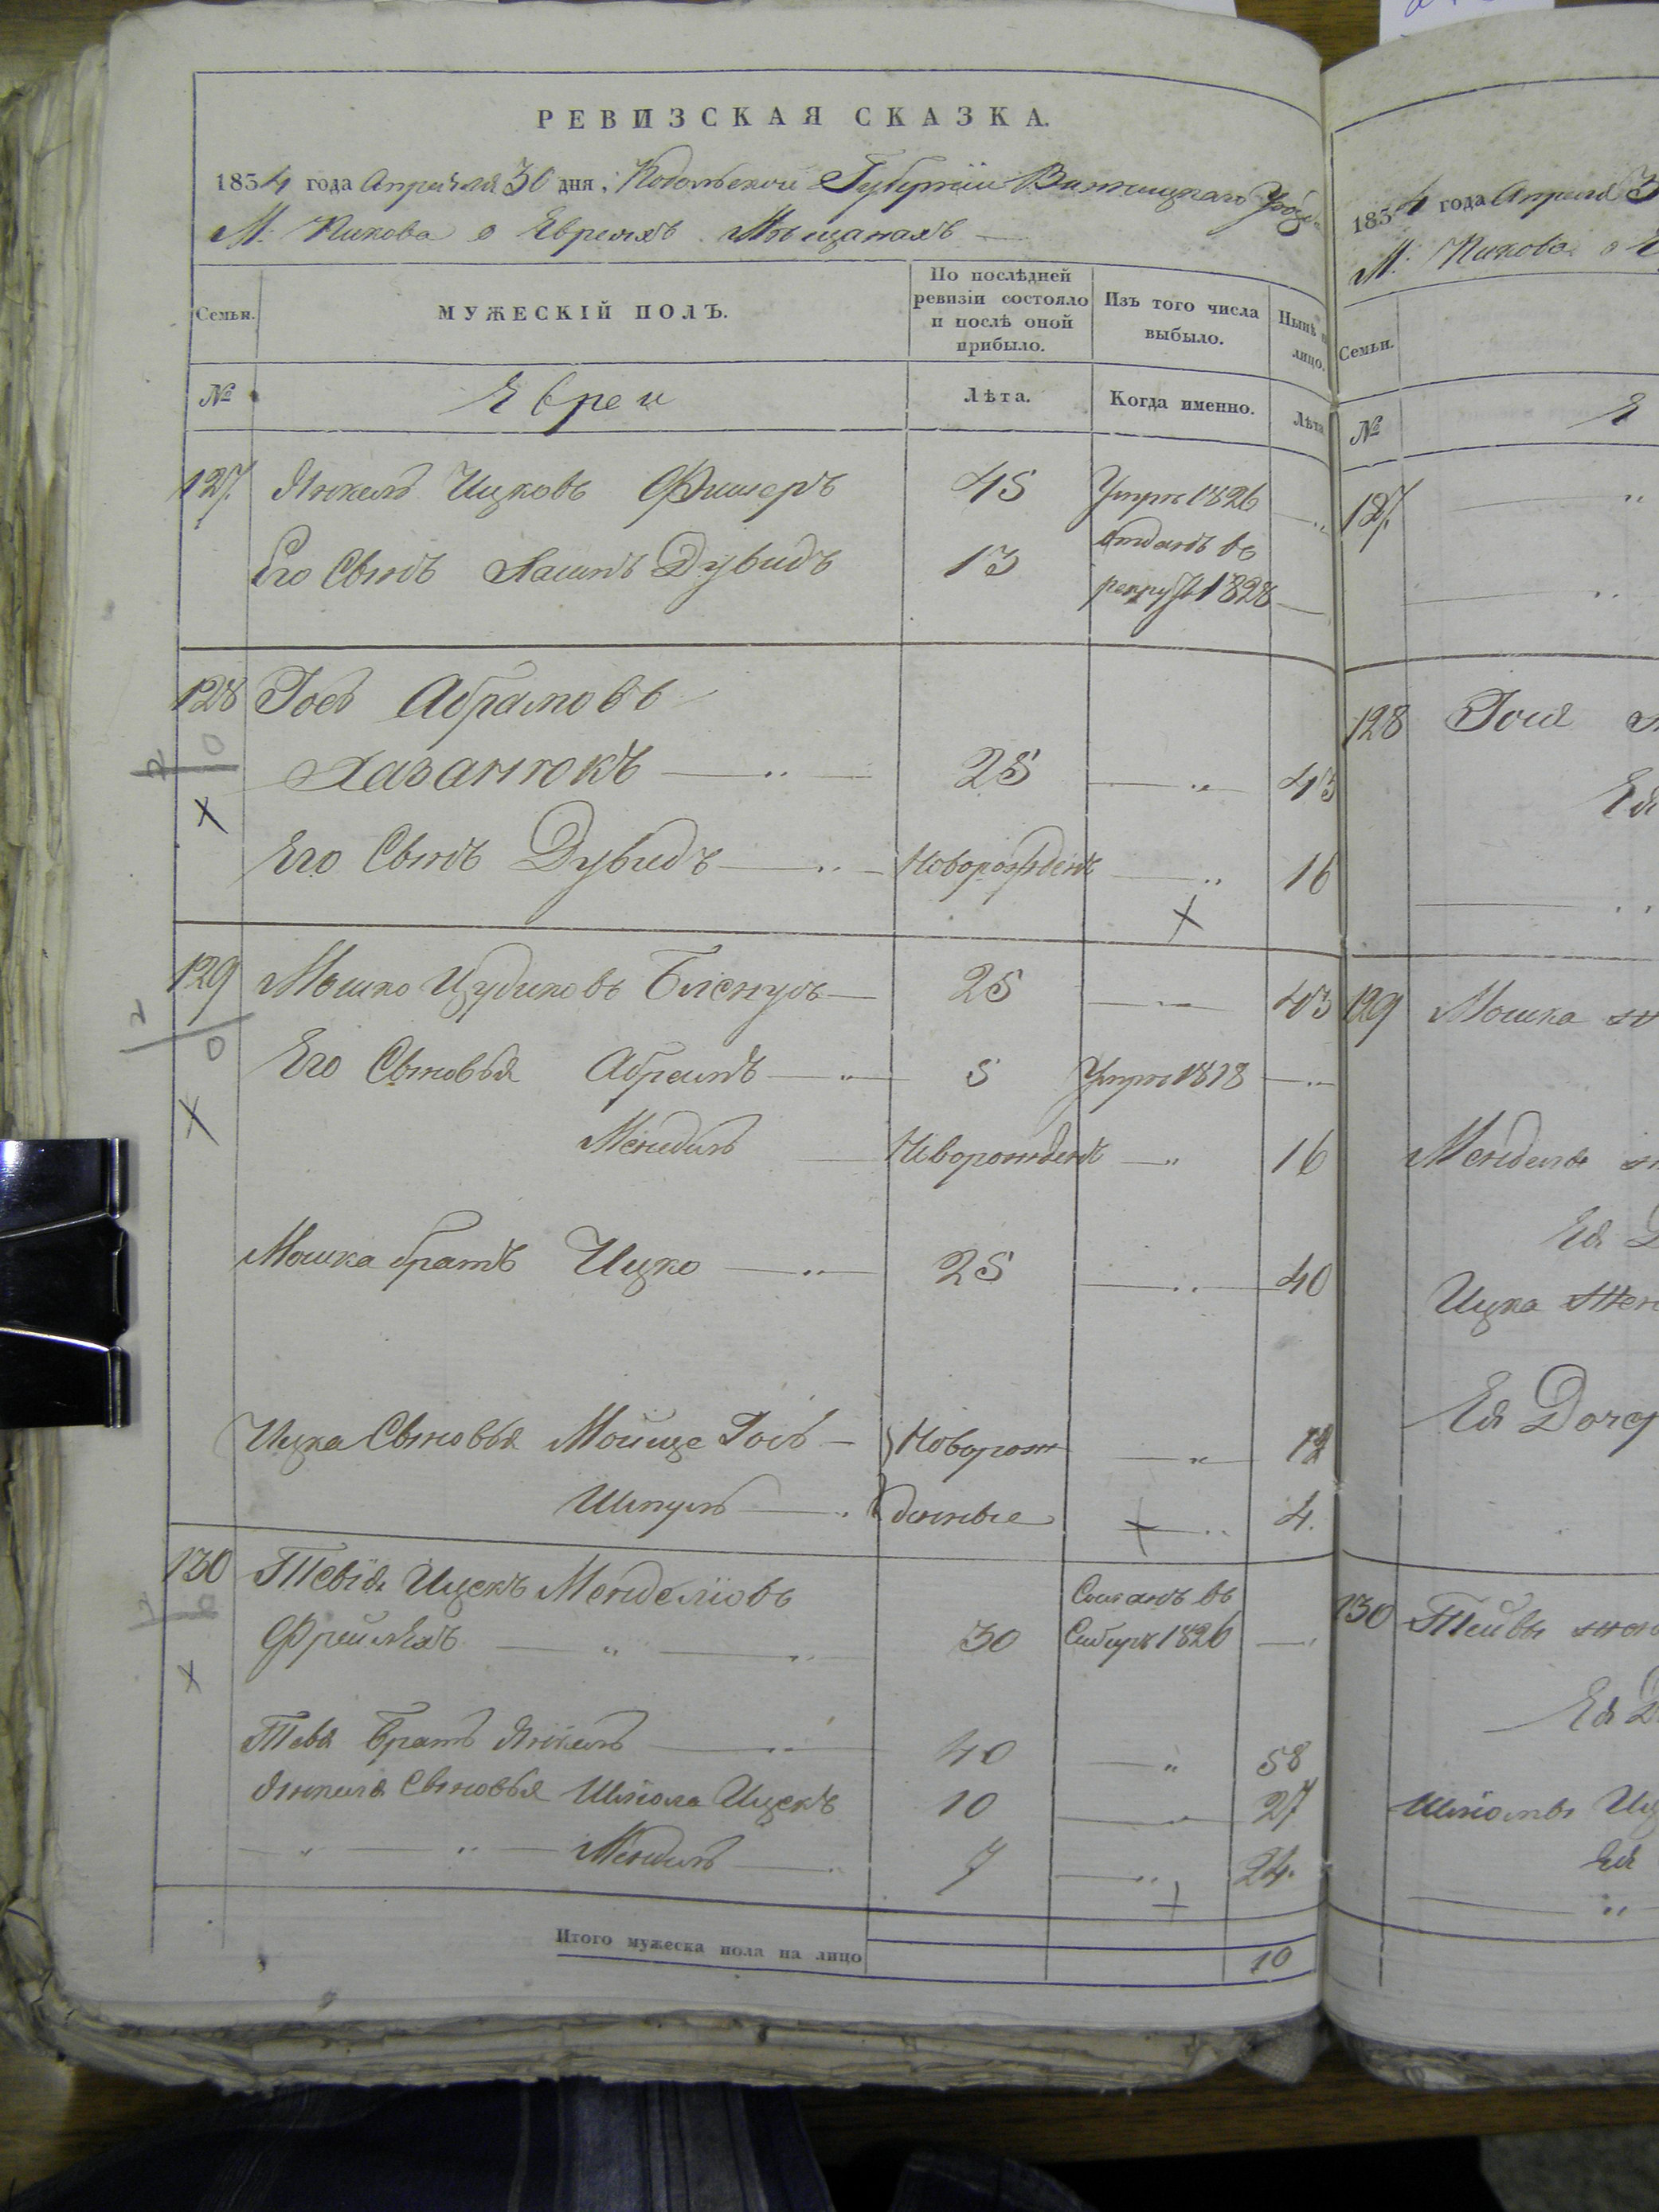 РЕВИЗСКАЯ СКАЗКА.
1834 года Апреля 30 дня, Подольской Губернии Винницкаго Уезда
М: Пикова о Евреяхъ Мещанахъ
Семьи.
МУЖЕСКІЙ ПОЛЪ.
По послѣдней ревизіи состояло и послѣ оной прибыло.
Изъ того числа выбыло.
Нынѣ на лицо.
№
Евреи
Лѣта.
Когда именно.
Лѣта
127. Янкель Ицковъ Фишеръ 45 Умре 1826
Его Сынъ Хаимъ Дувидъ 13 отданъ въ рекруты 1828
128 Іосъ Абрамовъ
Хазанюкъ 25 43
Его Сынъ Дувидъ Новорожденъ 16
129 Мошко Цудиковъ 25 43
Его Сыновья Абрамъ 5 Умре 1818
Мендиль Новорожденъ 16
Мошка братъ Ицко 25 40
Ицка Сыновья Мойше Іосъ Новорож 12
Шмуль денные 4.
130 Тевія Ицекъ Менделіовъ
30 Сосланъ въ Сибирь 1826
Тевя братъ Янкель 40 58
Янкеля Сыновья Шліома Ицекъ 10 27
Мендиль 7 24.
Итого мужеска пола на лицо 10
1834 года Апреля 3
М: Пикова о Е
Семьи.
№
Е
127.
128 Іося
Ея
129 Мошка
Менделя
Ея Д
Ицка Жен
Ея Дочер
130 Тейвы жен
Ея Д
Шліомы Иц
Ея